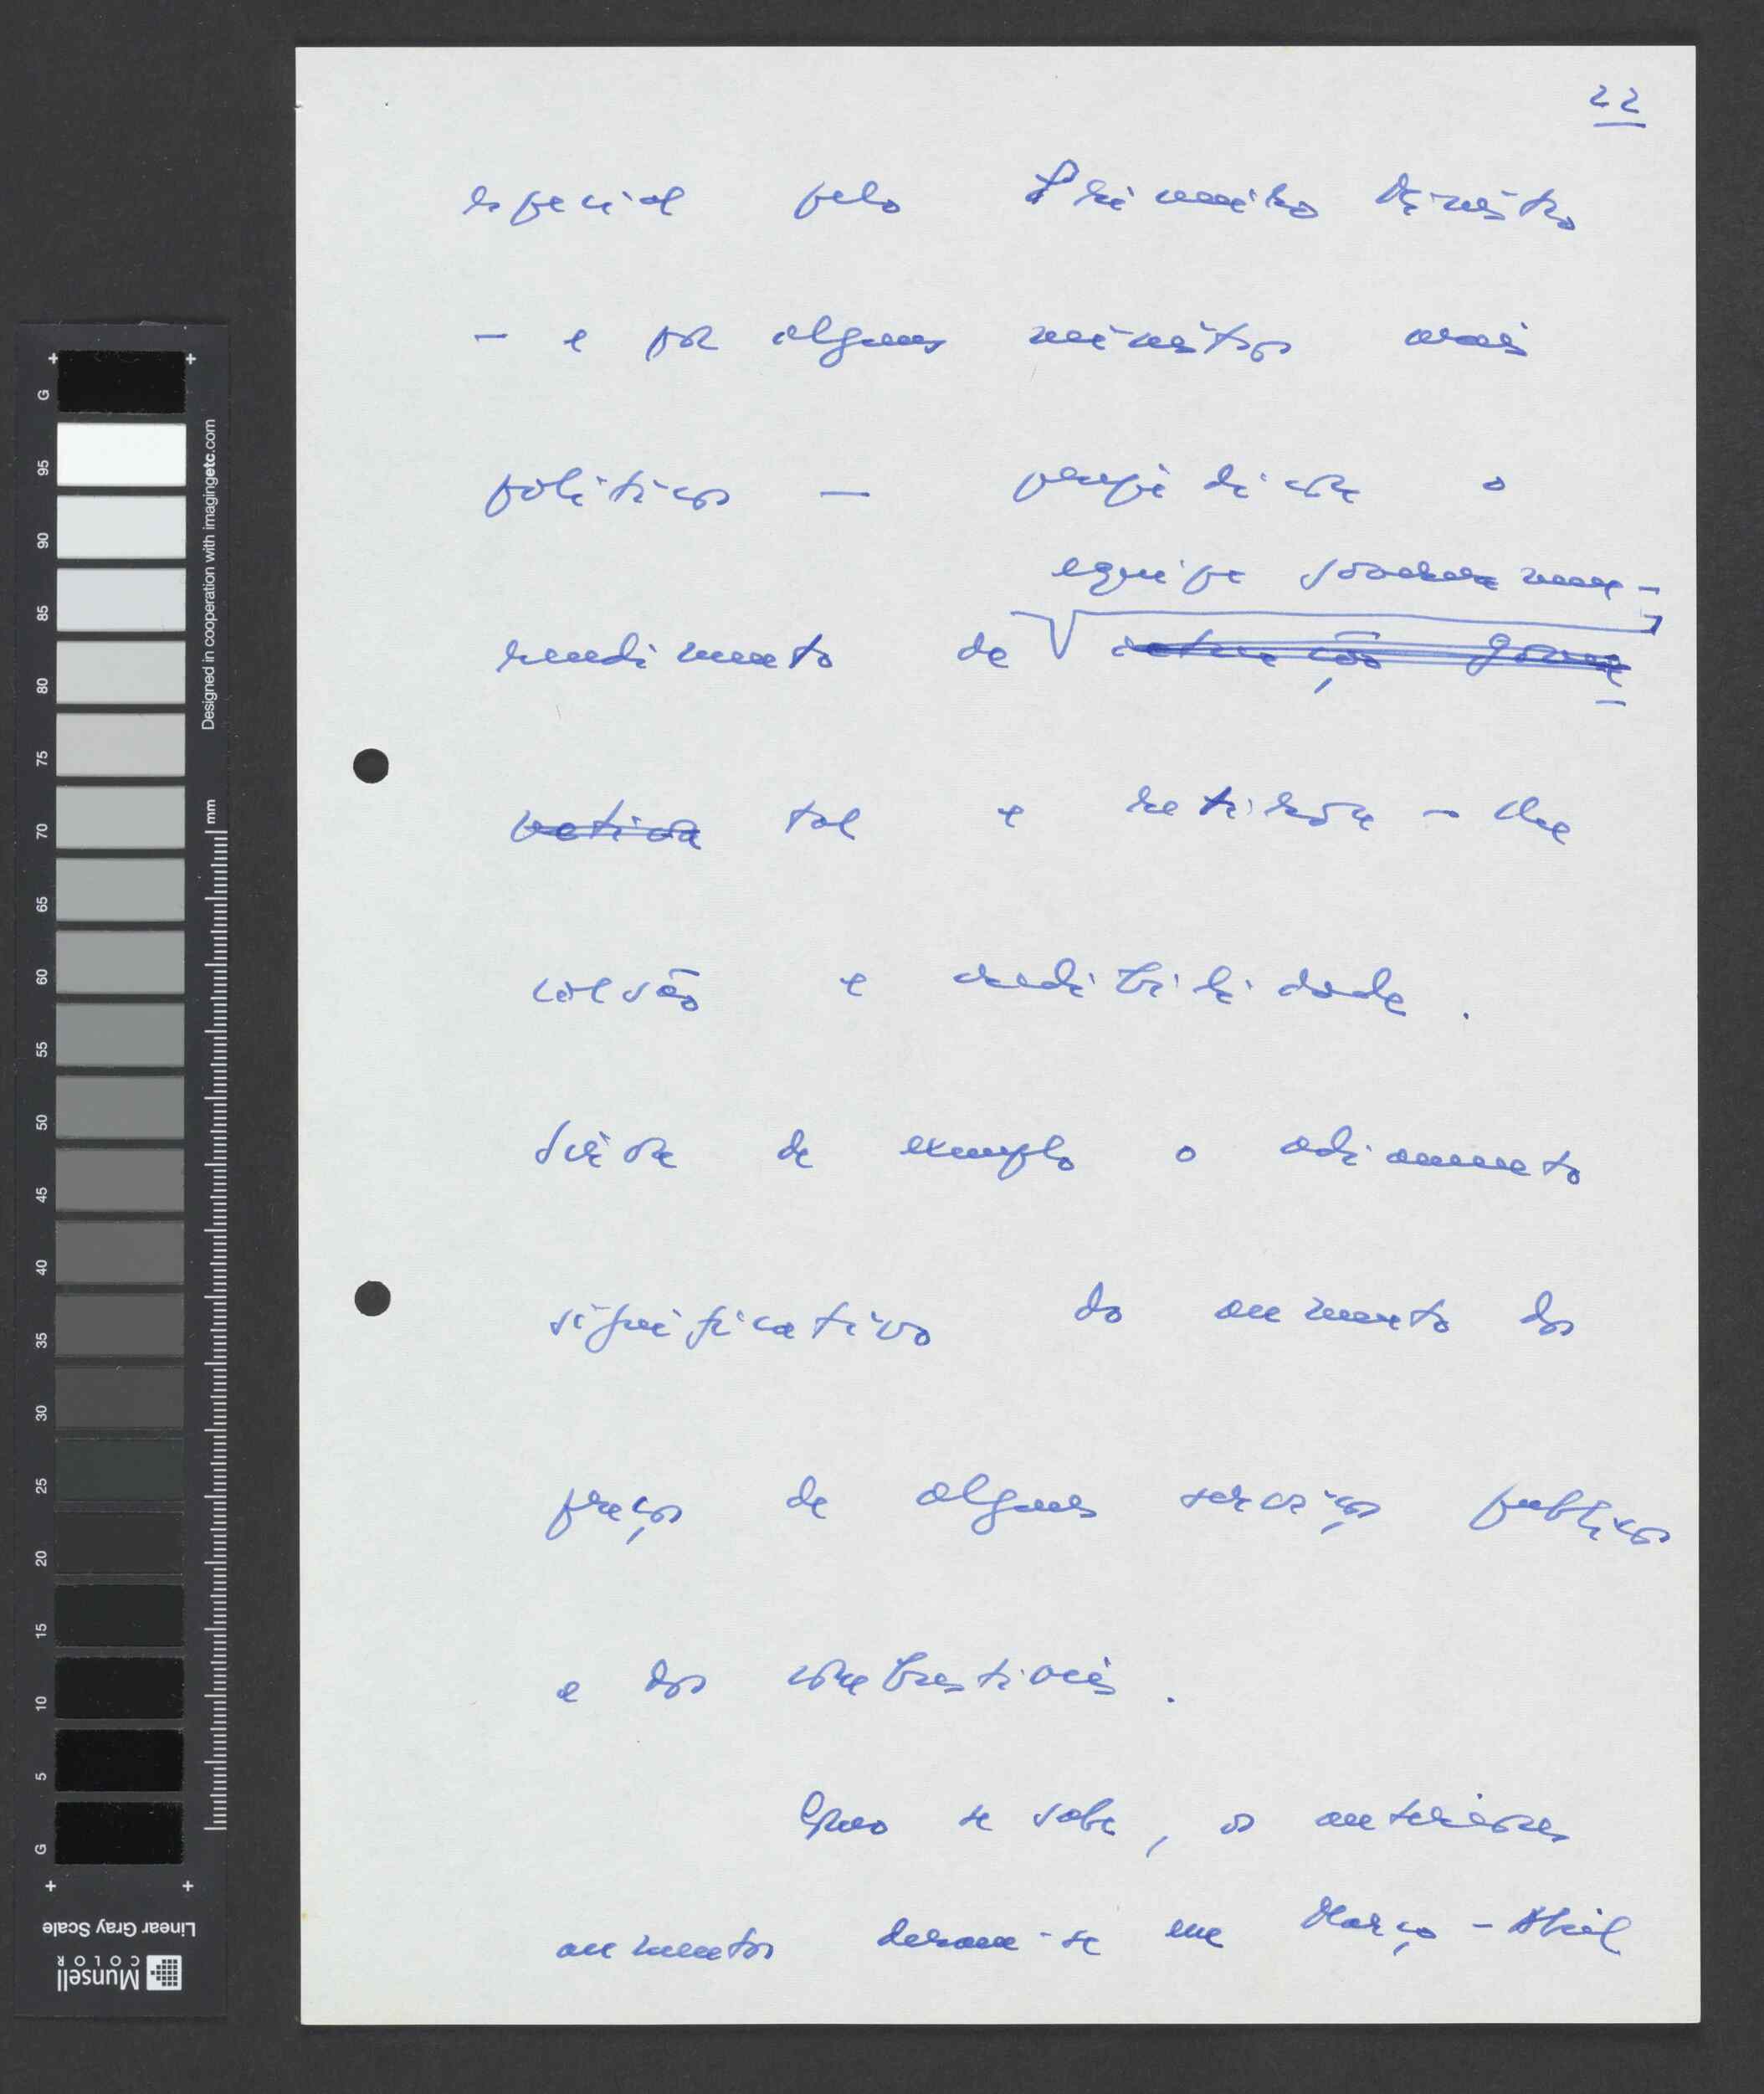 22
especial pelo Primeiro Ministro
— e por alguns ministros mais
políticos — prejudicam o
equipe governamen-
rendimento de actuação governa-
tiva tal e retiram-lhe
coesão e credibilidade.
Serve de exemplo o adiamento
significativo do aumento dos
preços de alguns serviços publicos
e dos combustíveis.
Como se sabe, os anteriores
aumentos deram-se em Março-Abril
G 95 90 85 80 75 70 65 60 55 50 45 40 35 30 25 20 15 10 5 G
mm
Designed in cooperation with imagingetc.com
Linear Gray Scale
Munsell
COLOR